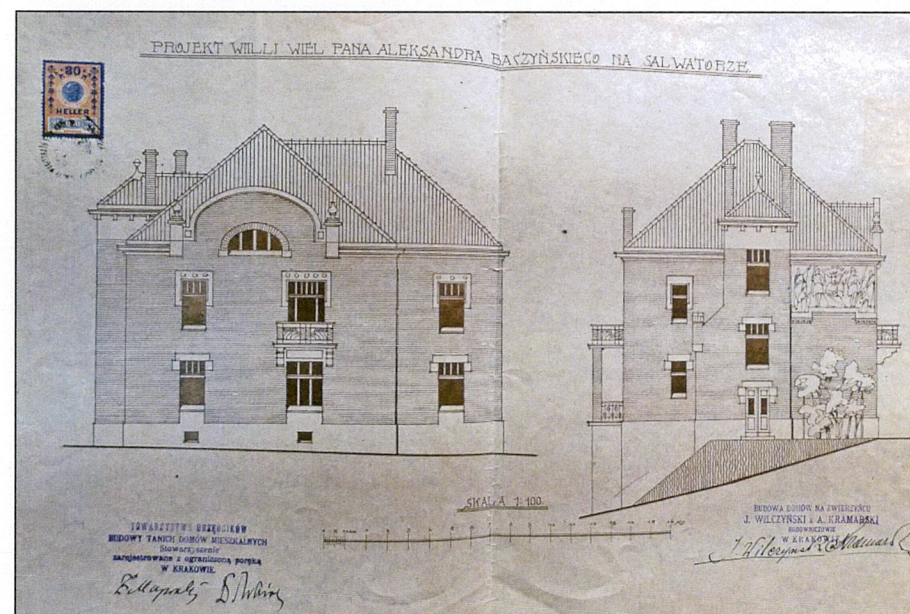 PROJEKT WILLI WIEL PANA ALEKSANDRA BACZYŃSKIEGO NA SALWATORZE.
80
HELLER
SKALA 1:100.
TOWARZYSTWO URZĘDNIKÓW
BUDOWY TANICH DOMÓW MIESZKALNYCH
Stowarzyszenie
zarejestrowane z ograniczoną poręką
W KRAKOWIE.
BUDOWA DOMÓW NA ZWIERZYŃCU
J. WILCZYŃSKI i A. KRAMARSKI
BUDOWNICZOWIE
W KRAKOWIE
J. Wilczyński